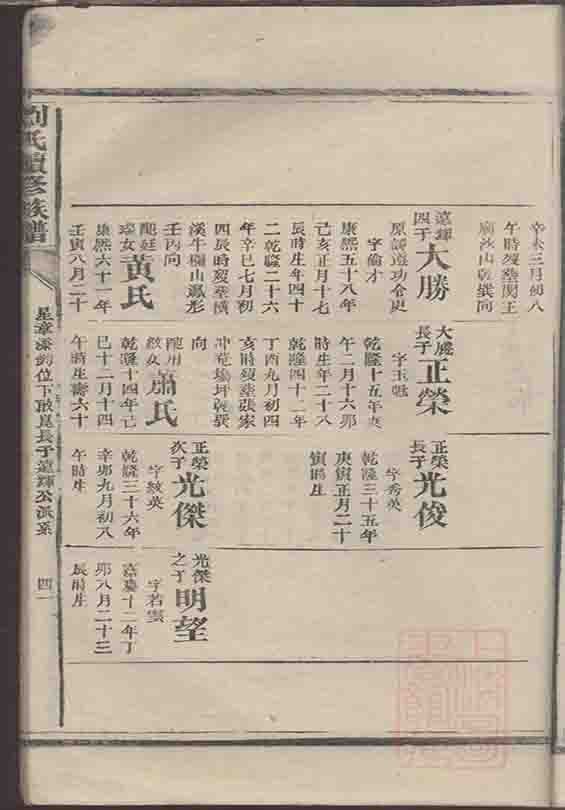 辛未三月初八
午時歿葬関王
廟後山乾巽向
遠輝四子大勝
原譜遺功令更
字倫才
康熙五十八年
己亥正月十七
辰時生年四十
二乾隆二十六
年辛巳七月初
四辰時歿葬橫
溪牛欄山瀑形
壬丙向
配廷璨女黃氏
康熙六十一年
壬寅八月二十
大勝長子正榮
字玉魁
乾隆十五年庚
午二月十六卯
時生年二十八
乾隆四十二年
丁酉九月初四
亥時歿葬張家
冲茍塲坪乾巽
向
蕭氏
乾隆十四年己
巳十二月十四
午時生壽六十
正榮長子光俊
字秀英
乾隆三十五年
庚寅正月二十
寅時生
正榮次子光傑
字紋英
乾隆三十六年
辛卯九月初八
午時生
光傑之子明望
字若雲
嘉慶十二年丁
卯八月二十三
辰時生
劉氏續修族譜
星章派鈞位下啟崑長子遠輝公派系
四一